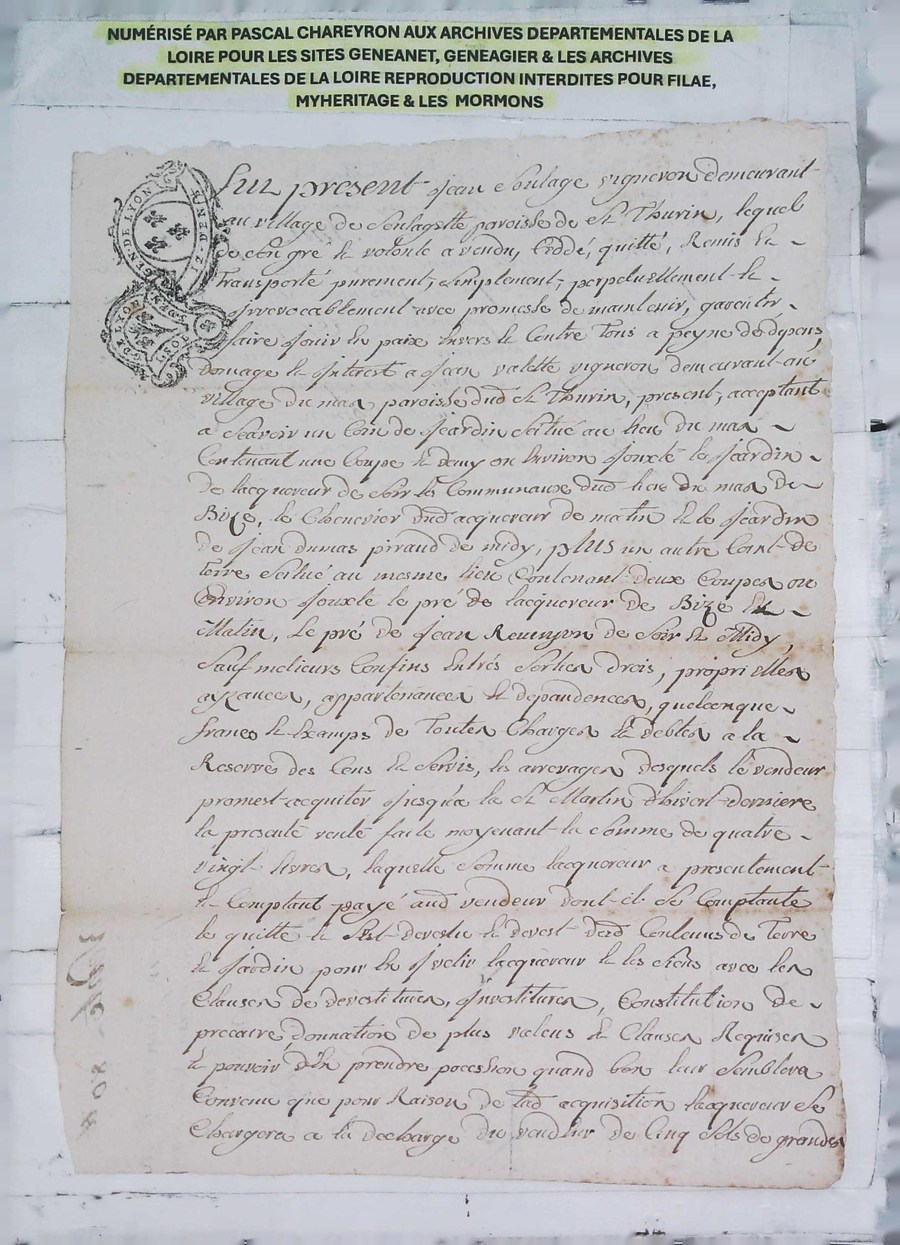 NUMÉRISÉ PAR PASCAL CHAREYRON AUX ARCHIVES DEPARTEMENTALES DE LA
LOIRE POUR LES SITES GENEANET, GENEAGIER & LES ARCHIVES
DEPARTEMENTALES DE LA LOIRE REPRODUCTION INTERDITES POUR FILAE,
MYHERITAGE & LES MORMONS
GEN. DE LYON
12. DEN. RS
Fut present Jean Soulage vigneron demeurant
au village de Soulagette paroisse de St Thurin, lequel
de son gré et volonté a vendu, Ceddé, quitté, Remis Et
Transporté purement, simplement, perpetuellement et
irrevocablement avec promesse de maintenir, garentir
faire Jouir En paix Envers Et Contre Tous a peyne de depens,
domage Et Interest a Jean valette vigneron demeurant au
village du mas paroisse dud St Thurin, present, acceptant
a Scavoir un Coin de Jeardin Scitué au lieu du mas
Contenant une Coupe Et demy ou Environ Jouxte le Jeardin
de lacquereur de soir les Communaux dud lieu du mas de
Bize, le Chenevier dud acquereur de matin Et le Jeardin
de Jean dumas piraud de midy, plus un autre Coint de
terre Scitué au mesme lieu Contenant deux Coupes ou
Environ Jouxte le pré de lacquereur de Bize Et
Matin, Le pré de Jean de Soir Et Midy,
Sauf melieurs Confins Entrés Sorties drois, proprietés
ayzances, appartenances Et depandences, quelconque
francs Et Exemps de Toutes Charges Et debtes a la
Reserve des Cens Et Servis, les arreyages desquels le vendeur
promest acquiter Jusqu'a la St Martin d'hivert derniere
la presente vente faite moyenant la somme de quatre
vingt livres, laquelle somme lacquereur a presentement
Et Comptant payé aud vendeur dont il Se Comptante
le quitte Et Sest devestu Et devest desd Contenus de Terre
Et Jardin pour En lacquereur Et les siens avec les
Clauses de devestitures, Investitures, Constitution de
precaire, donnation de plus valeus Et Clauses Requises
Et pouvoir d'En prendre pocession quand bon leur Semblera
Convenu que pour Raison de lad acquisition lacquereur Se
Chargera a la decharge du vendeur de Cinq Sols de grandes